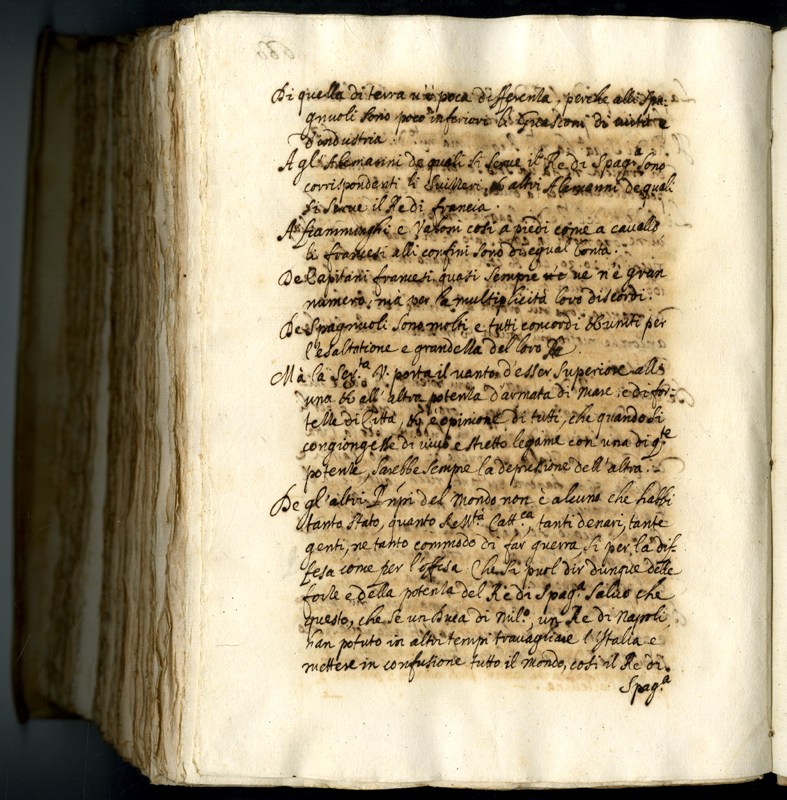 Di quella di terra vi è poca differenza, perche alli Spa:
gnuoli sono poco inferiori li Guasconi di virtù e
d'industria
A gl'Alemanni de quali si serve il Re di Spag.a sono
corrispondenti li Suizzeri, et altri Alemanni de quali
si serve il Re di francia.
A fiamminghi e Valoni così a piedi come a cavallo
li francesi alli confini sono di egual bontà.
De Capitani francesi quasi sempre ve n'è gran
numero, mà per la multiplicità loro discordi.
De Spagnuoli sono molti e tutti concordi et uniti per
l'esaltatione e grandezza del loro Re
Mà la Ser.ta V. porta il vanto d'esser superiore all'
una et all'altra potenza d'armata di mare, e di for-
tezze di Città, et è opinione di tutti, che quando si
congiongesse di vivo e stretto legame con una di q.te
potenze, sarebbe sempre la depressione dell'altra.
De gl'altri Pnpi del mondo non è alcuno che habbi
tanto stato, quanto Sua M.tà Catt.ca, tanti denari, tante
genti, ne tanto commodo di far guerra, si per la dif-
fesa come per l'offesa Che si puol dir dunque delle
forze e della potenza del Re di Spag.a salvo che
questo, che se un Duca di Mil.o, un Re di Napoli
han potuto in altri tempi travagliare l'Italia e
mettere in confusione tutto il mondo, così il Re di
Spag.a